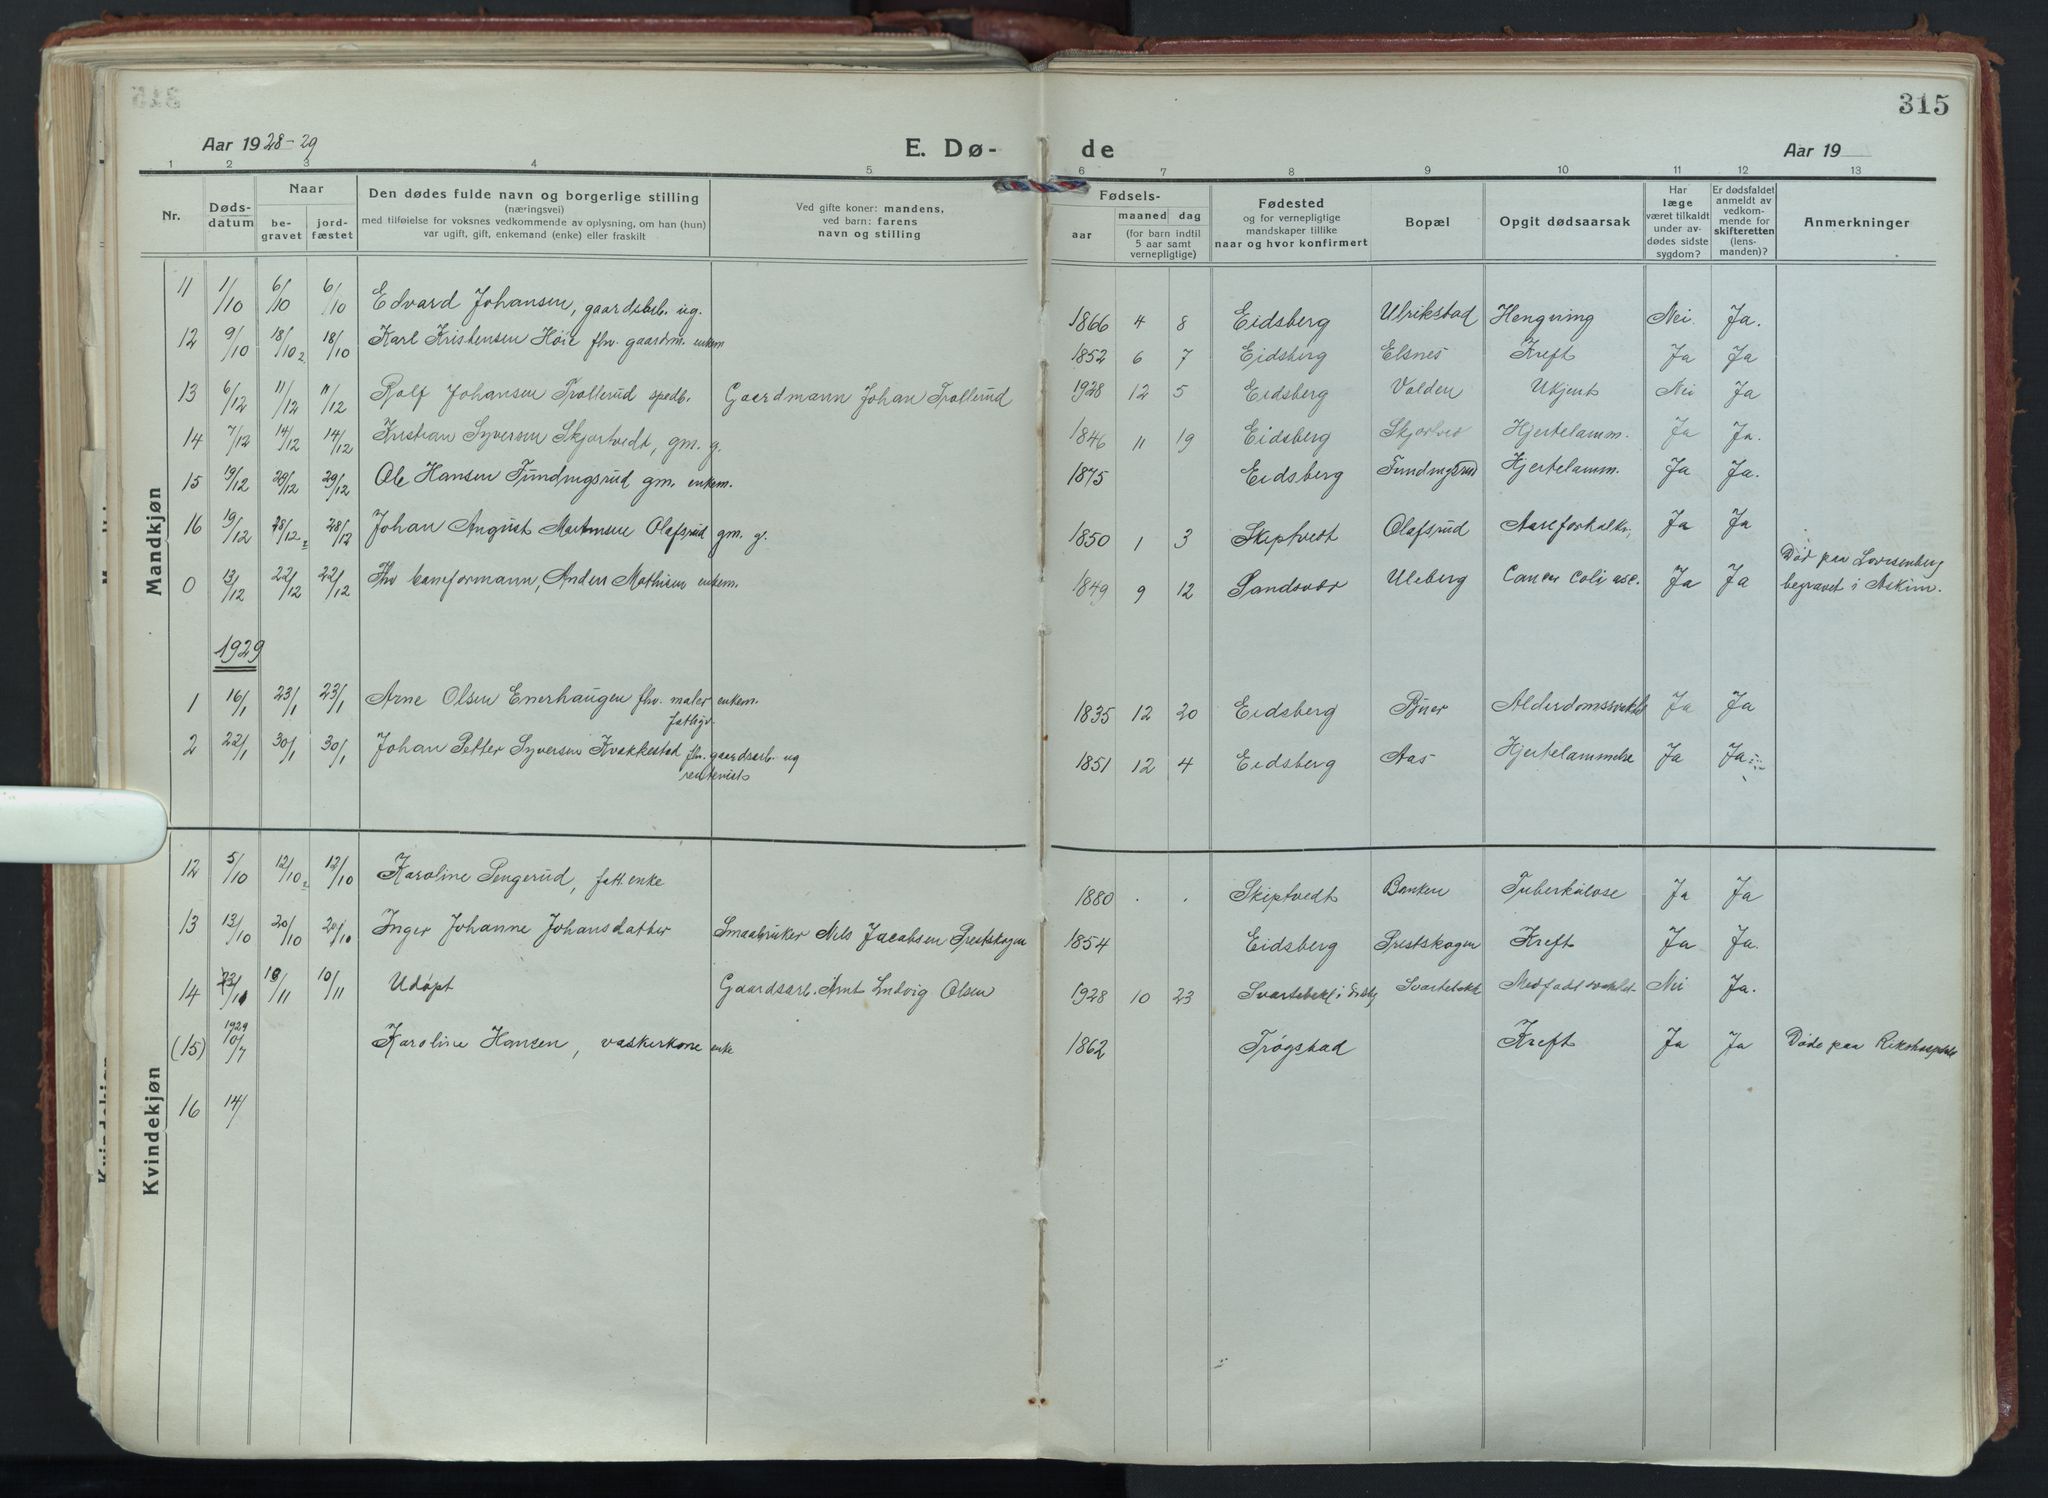 315
Aar 1928-29 E. Dø- de Aar 19
1 2 3 4 5 6 7 8 9 10 11 12 13
Nr.
Døds-
datum
Naar
be-
gravet
jord-
fæstet
Den dødes fulde navn og borgerlige stilling
(næringsvei)
med tilføielse for voksnes vedkommende av oplysning, om han (hun)
var ugift, gift, enkemand (enke) eller fraskilt
Ved gifte koner: mandens,
ved barn: farens
navn og stilling
Fødsels-
aar
maaned dag
(for barn indtil
5 aar samt
vernepligtige)
Fødested
og for vernepligtige
mandskaper tillike
naar og hvor konfirmert
Bopæl
Opgit dødsaarsak
Har
læge
været tilkaldt
under av-
dødes sidste
sygdom?
Er dødsfaldet
anmeldt av
vedkom-
mende for
skifteretten
(lens-
manden)?
Anmerkninger
Mandkjøn
11 1/10 6/10 6/10 Edvard Johansen, gaardsarb. ug. 1866 4 8 Eidsberg Ulrikstad Hengning Nei. Ja.
12 9/10 18/10 18/10 Karl Kristensen Höie fhv. gaardm. enkem 1852 6 7 Eidsberg Elsnes Kreft Ja Ja
13 6/12 11/12 11/12 Rolf Johansen Trollerud spedb. Gaardmann Johan Trollerud 1928 12 5 Eidsberg Volden Ukjent Nei Ja
14 7/12 14/12 14/12 Kristian Syversen Skjortvedt, gm. g. 1846 11 19 Eidsberg Skjortved Hjertelamm. Ja Ja.
15 19/12 29/12 29/12 Ole Hansen Tundingsrud gm. enkem. 1875 Eidsberg Tundingsrud Hjertelamm. Ja Ja.
16 19/12 28/12 28/12 Johan August Martinsen Olafsrud gm. g. 1850 1 3 Skiptvedt Olafsrud Aareforkalkn. Ja Ja
0 13/12 22/12 22/12 Fhv baneformann, Anders Mathisen enkem. 1849 9 12 Sandsvær Uleberg Cancer coli asc. Ja Ja Död paa Lovisenberg
begravet i Askim.
1929
1 16/1 23/1 23/1 Arne Olsen Enerhaugen fhv. maler enkem. 1835 12 20 Eidsberg Buer Alderdomssvakhet Ja Ja
fattigv.
2 22/1 30/1 30/1 Johan Petter Syversen Kvakkestad fhv. gaardsarb. ug 1851 12 4 Eidsberg Aas Hjertelammelse Ja Ja
rentenist
Kvindekjøn
12 5/10 12/10 12/10 Karoline Pengerud, fatt. enke 1880 . . Skiptvedt Banken Tuberkulose Ja Ja
13 13/10 20/10 20/10 Inger Johanne Johansdatter Smaabruker Nels Jacobsen Prestskogen 1854 Eidsberg Prestskogen Kreft Ja Ja.
14 23/10 10/11 10/11 Udöpt Gaardsarb. Arnt Ludvig Olsen 1928 10 23 Svartebekk i Eidsbg Svartebekk Medfødt svakhet Nei Ja.
(15) 1929 10/7 Karoline Hansen, vaskerkone enke 1862 Trögstad Kreft Ja Ja Döde paa Rikshospitalet
16 14/